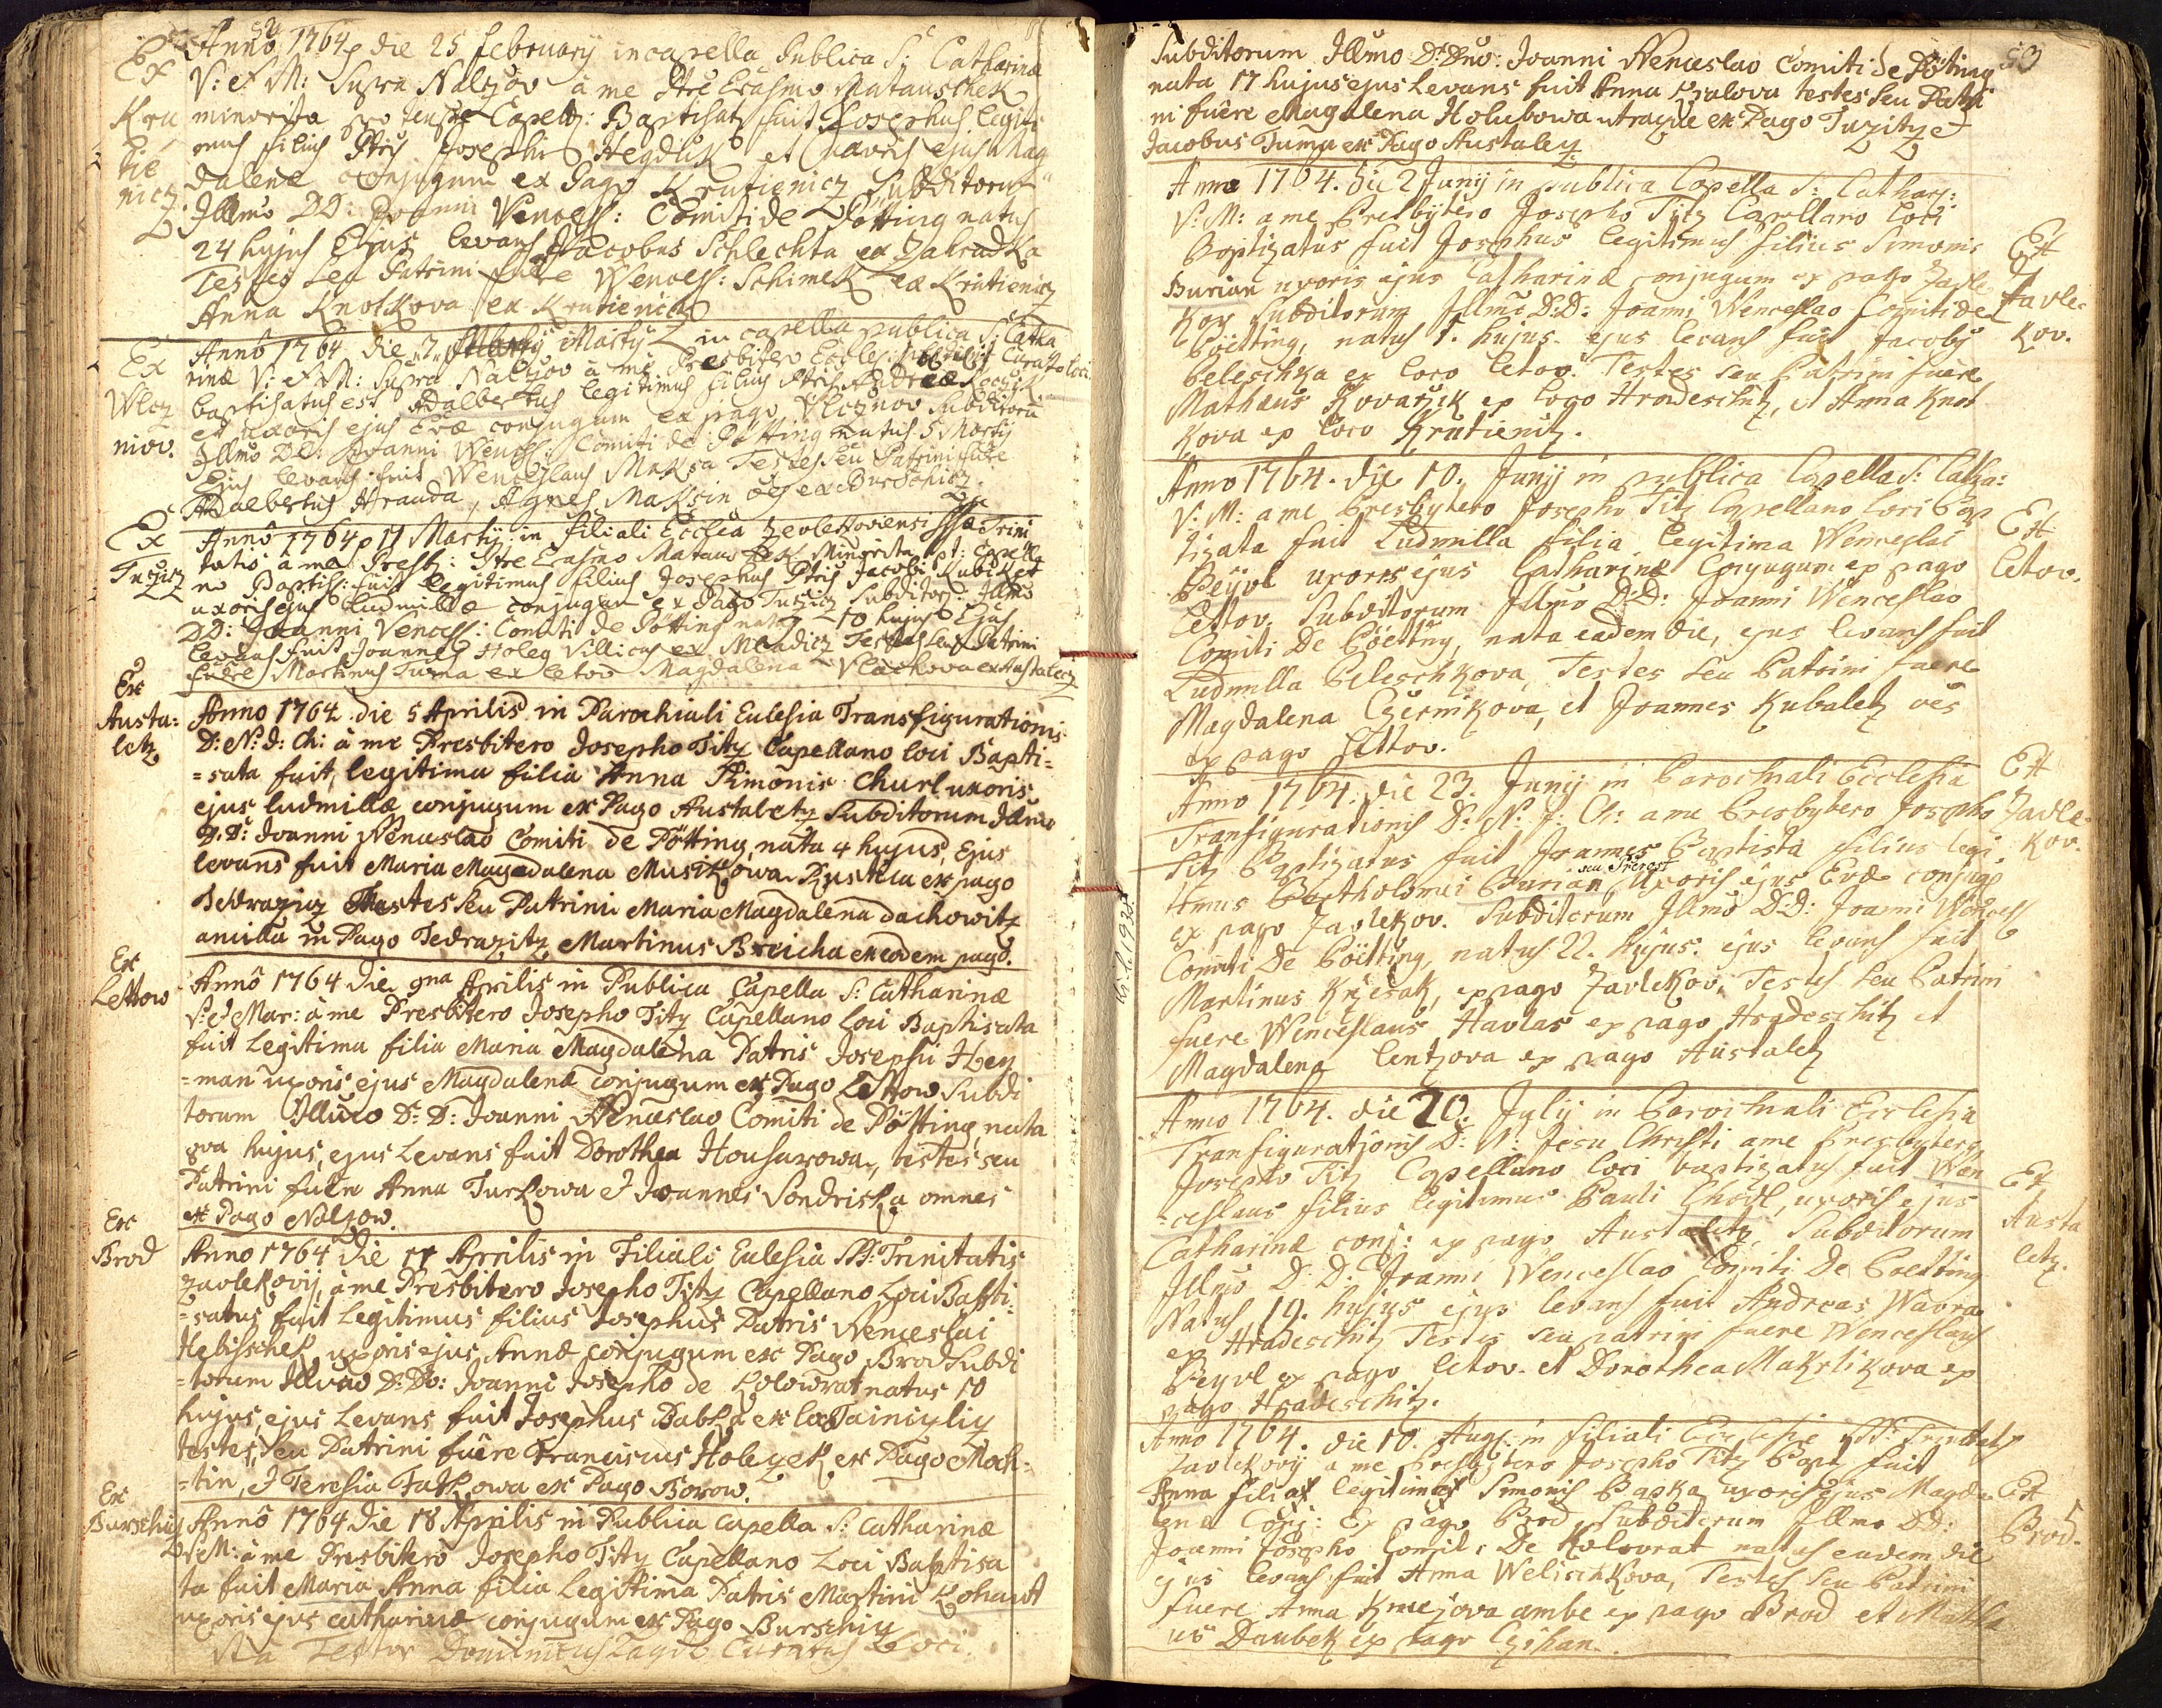 52
Ex Krutienicz
Anno 1764 die 25 february in capella Publica S: Catharinæ
V: et M: Supra Nalzov à me Ptre Erasmo Matauschek
minorita pro tempre Capell: Baptisat9 fuit Josephus legiti
mus filius Ptris Josephi Hegduk et Uxoris ejus Mag
dalenæ conjugum ex Pago Krutienicz Subditorum
Illmo DD: Joanni Wencesl: Comiti de Pötting natus
24 hujus Ejus levans Jacobus Schlechta ex Zahradka
Testes seu Patrini fuere Wencesl: Schimek ex Krutienicz
Anna Knotkova ex Krutienicz
Ex Wlczniov.
Anno 1764 die 7 Martÿ in capella publica S: Catha
rinæ V: et M: Supra Nalzov à me Presbitero Curato loci
baptisatus est Adalbertus legitimus filius Ptris Andreæ
et uxoris ejus Evæ conjugum ex pago Vlcznov Subditorū
Illmo DD: Joanni Wencesl: Comiti de Pötting natus 5 Martÿ
Ejus levans fuit Wenceslaus Maksa Testes seu Patrini fuere
Adalbertus Hranda, Agnes Maksin oēs ex Burschicz.
Ex Tuzicz
Anno 1764 11 Martÿ in filiali Ecclēa Zavlekoviensi SSæ: Trini
tatis à me Presb: Ptre Erasmo Matauschek Minorita pt: Capella
no Baptis: fuit legitimus filius Josephus Ptris Jacobi Kubik et
uxoris ejus Ludmillæ conjugum ex Pago Tuzicz Subditor: Illmo
DD: Joanni Vencesl: Comiti de Pötting natus 10 hujus Ejus
levans fuit Joannes Holeg Villicus ex Mladicz Testes seu Patrini
fuere Martinus Tuma ex Letov Magdalena Vlachova ex Austalecz
Ex Austa:letz
Anno 1764 die 5 Aprilis in Parochiali Eulesia Transfigurationis
D: N: J: Ch: à me Presbitero Josepho Tity Capellano loci Bapti=
=sata fuit, legitima filia Anna Simonis Churl uxoris
ejus ludmillæ conjugum ex Pago Austaletz Subditorum Illmo
D: D: Joanni Wenceslao Comiti de Pötting, nata 4 hujus, Ejus
levans fuit Maria Magdalena Musikowa Rustica ex pago
Tedrazicz Testes seu Patrini Maria Magdalena dachowitz
ancilla in Pago Tedrazitz Martinus Breicha ex eodem pago.
Ex Lettow
Anno 1764 die 9na Aprilis in Publica Capella S: Catharinæ
V: et Mar: à me Presbitero Josepho Tity Capellano Loci Baptisata
fuit Legitima filia Maria Magdalena Patris Josephi Hey
=man uxoris ejus Magdalenæ conjugum ex Pago Lettow Subdi
torum Illmo D: D: Joanni Wenceslao Comiti de Pötting, nata
9va hujus, ejus Levans fuit Dorothea Housarowa, testes seu
Patrini fuere Anna Turkowa et Joannes Sondriska omnes
ex Pago Nalzow.
Ex Brod
Anno 1764 die 11 Aprilis in Filiali Eulesia SS: Trinitatis
Zavlekovij, à me Presbitero Josepho Tity Capellano Loci Bapti=
=satus fuit Legitimus filius Josephus Patris Wenceslai
Hebischek uxoris ejus Annæ conjugum ex Pago Brod Subdi
=torum Illmo D: Dō: Joanni Josepho de Kolowrat natus 10
hujus, ejus Levans fuit Josephus Babka ex
testes, seu Patrini fuêre Franciscus Holeyek ex Pago Moch=
=tin, et Teresia Fatkowa ex Pago Borow.
Ex Burschitz
Anno 1764 die 18 Aprilis in Publica capella S: Catharinæ
V: et M: à me Presbitero Josepho Tity Capellano Loci Baptisa
ta fuit Maria Anna filia Legittima Patris Martini Kohaut
uxoris ejus catharinæ conjugum ex Pago Burschitz
Curatus Loci.
53
Subditorum Illmo D: Dno: Joanni Wenceslao Comiti de Pöting
nata 17 hujus ejus Levans fuit Anna Kralova testes seu Patri
ni fuêre Magdalena Holubowa utraque ex Pago Tuzitz et
Jacobus Tuma ex Pago Austaletz
Anno 1764. die 2 Junÿ in publica Capella S: Cathar:
V: M: a me Presbÿtero Josepho Titz Capellano loci
Baptizatus fuit Josephus legitimus filius Simonis
Burian uxoris ejus Catharinæ conjugum ex pago Zavle
kov Subditorum Illmo D:D: Joanni Wenceslao Comiti de
Pöetting, natus 1. hujus. ejus levans fuit Jacobg
Peleschka ex loco Letov. Testes seu Patrini fuere
Mathæus Kovařzik ex loco Hradeschitz, et Anna Knot
kova ex loco Krutienitz.
Ex Zavlekov.
Anno 1764. die 10. Junÿ in publica Capella S: Catha:
V: M: a me Presbÿtero Josepho Titz Capellano loci Bap
tizata fuit Ludmilla filia legitima Wenceslai
Peÿvl uxoris ejus Catharinæ Conjugum ex pago
Lettov. Subditorum Illmo D:D: Joanni Wenceslao
Comiti De Pöetting, nata eadem die, ejus levans fuit
Ludmilla Peleschkova, Testes seu Patrini fuere
Magdalena Czernikova, et Joannes Kubaletz oēs
ex pago Lettov.
Ex Letov.
Anno 1764. die 23. Junÿ in Parochiali Ecclesia
Transfigurationis D: N: J: Ch: a me Presbytero Josepho
Titz Baptizatus fuit Joannes Baptista filius legi
timus Bartholomei Burian Uxoris ejus Evæ conjug
ex pago Zavlekov. Subditorum Illmo D:D: Joanni Wencesl
Comiti De Pöetting, natus 22. hujus. ejus levans fuit
Martinus Krzesak, ex pago Zavlekov. Testes seu Patrini
fuere Wenceslaus Havlas ex pago Hradeschitz et
Magdalena Lentzova ex pago Austaletz
Ex Zavlekov.
Anno 1764. die 20. Julÿ in Parochiali Ecclesia
Transfigurationis D: N: Jesu Christi a me Presbytero
Josepho Titz Capellano loci baptizatus fuit Wen
=ceslaus filius legitimus Pauli Chodl, uxoris ejus
Catharinæ conj: ex pago Austaletz, Subditorum
Illmo D: D: Joanni Wenceslao Comiti De Poetting
Natus 19. hujus ejus levans fuit Andreas Wavra
ex Hradeschitz Testes seu patrini fuere Wenceslaus
Peyvl ex pago Letov. et Dorothea Makrlikova ex
pago Hradeschitz.
Ex Austaletz.
Anno 1764. die 10. Aug: in filiali Ecclesia SS: Trinitatis
Zavlekovÿ a me Presbytero Josepho Titz Bapt fuit
Anna filia legitima Simonis Papka uxoris ejus Magda
lenæ Conj: Ex pago Brod Subditorum Illmo DD:
Joanni Josepho Comiti De Kolovrat natus eadem die
ejus levans fuit Anna Welischkova, Testes seu Patrini
fuere Anna Kmejova ambe ex pago Brod et Mathæ
us Daubek ex pago Czihan.
Ex Brod.